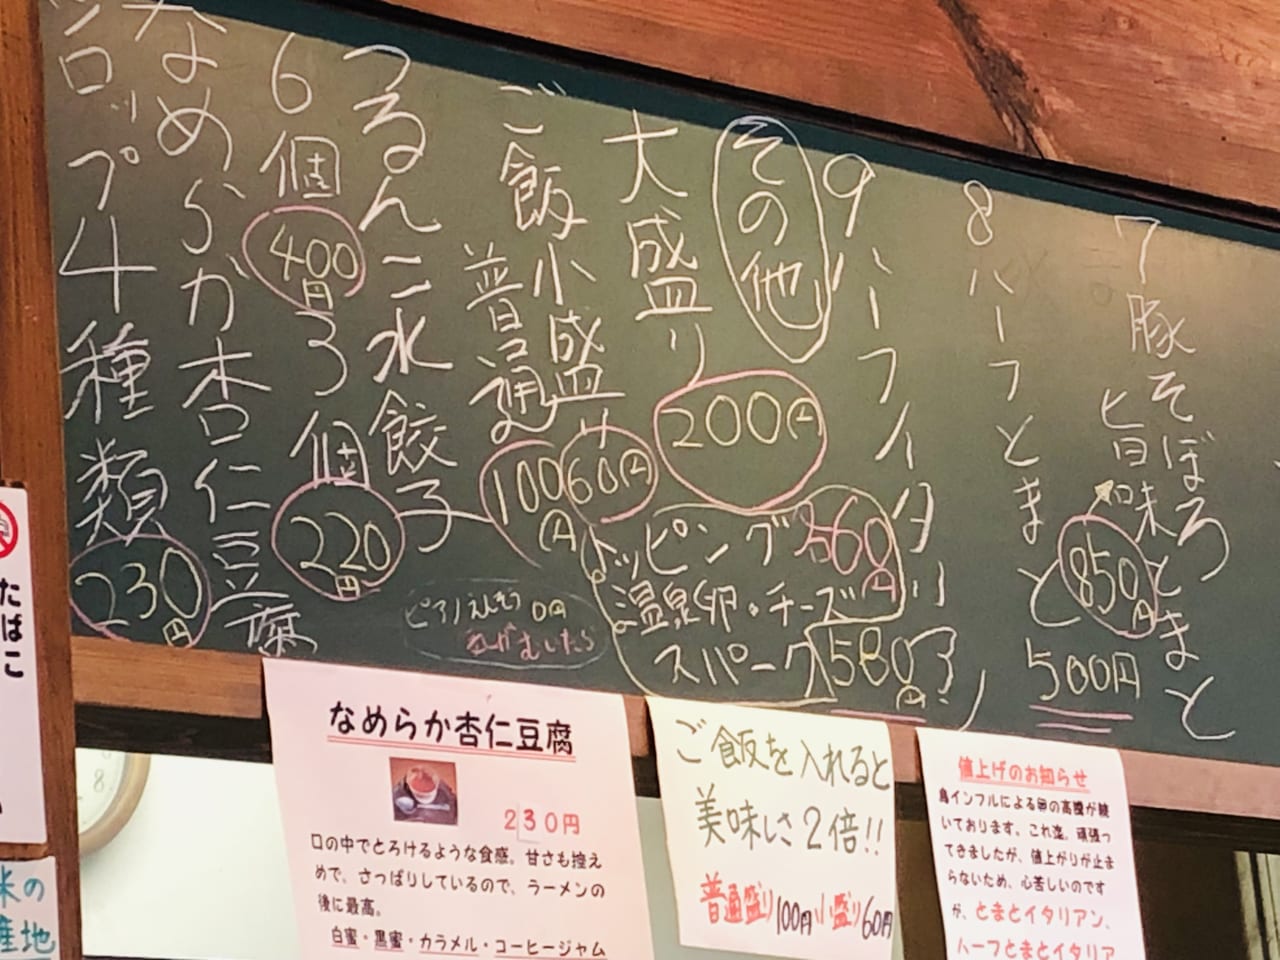 7豚そぼろとまと
旨味
850円
8ハーフとまと
500円
9ハーフイタリアン
580円
その他
大盛り
200円
トッピング各60円
温泉卵・チーズ
スパーク
ご飯小盛り
60円
普通
100円
つるんニ水餃子
6個
400円
3個
220円
なめらか杏仁豆腐
シロップ4種類
230円
ピアノえんそう 0円
気がむいたら
なめらか杏仁豆腐
230円
口の中でとろけるような食感。甘さも控え
めで、さっぱりしているので、ラーメンの
後に最高。
白蜜・黒蜜・カラメル・コーヒージャム
ご飯を入れると
美味しさ2倍!!
普通盛り100円 小盛り60円
値上げのお知らせ
鳥インフルによる卵の高騰が続
いております。これ迄、頑張っ
てきましたが、値上がりが止ま
らないため、心苦しいのです
が、とまとイタリアン、
ハーフとまとイタリア
たばこ
米の
産地
8